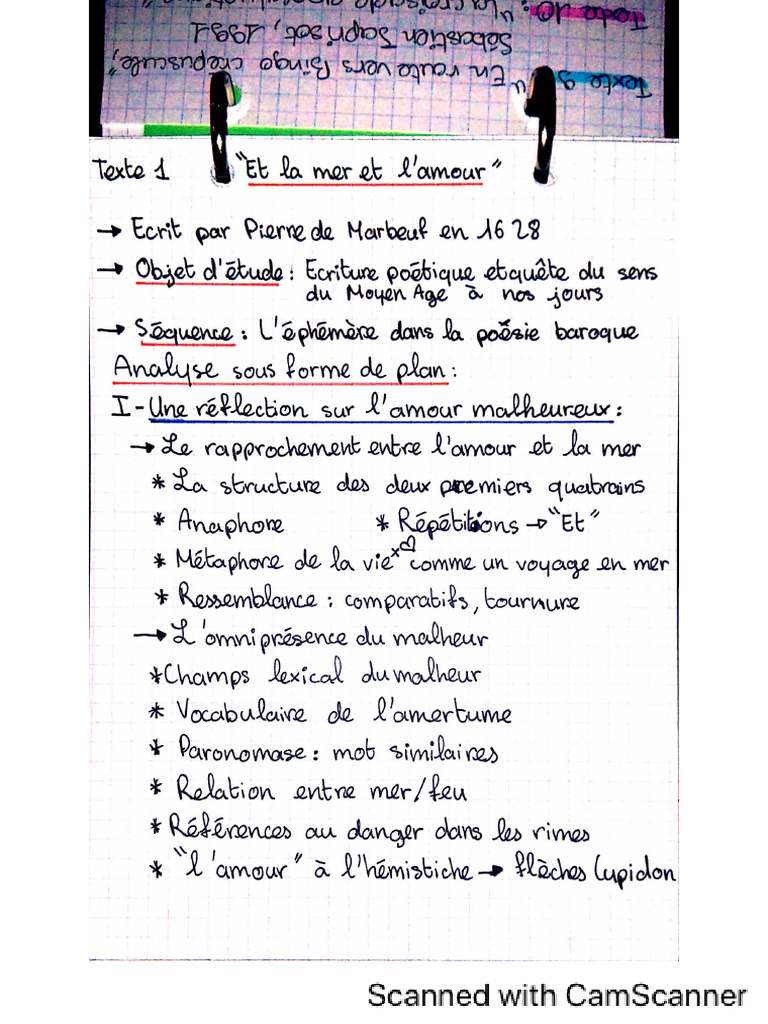 Texte 10 : "La croisade
Sébastien Japrisot, 1991
Texte 9 "En route vers Bingo crépuscule",
Texte 1 "Et la mer et l'amour"
→ Ecrit par Pierre de Marbeuf en 1628
→ Objet d'étude : Ecriture poétique et quête du sens
du Moyen Age à nos jours
→ Séquence : L'éphémère dans la poésie baroque
Analyse sous forme de plan :
I - Une réflection sur l'amour malheureux :
→ Le rapprochement entre l'amour et la mer
* La structure des deux premiers quatrains
* Anaphore * Répétitions → "Et"
* Métaphore de la vie comme un voyage en mer
* Ressemblance : comparatifs, tournure
→ L'omniprésence du malheur
* Champs lexical du malheur
* Vocabulaire de l'amertume
* Paronomase : mot similaires
* Relation entre mer/feu
* Références au danger dans les rimes
* "l'amour" à l'hémistiche → flèches Cupidon
Scanned with CamScanner